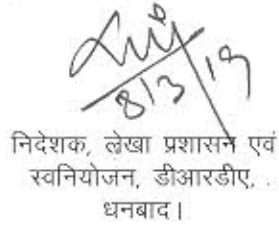 8/3/19
निदेशक, लेखा प्रशासन एवं
स्वनियोजन, डीआरडीए,
धनबाद।